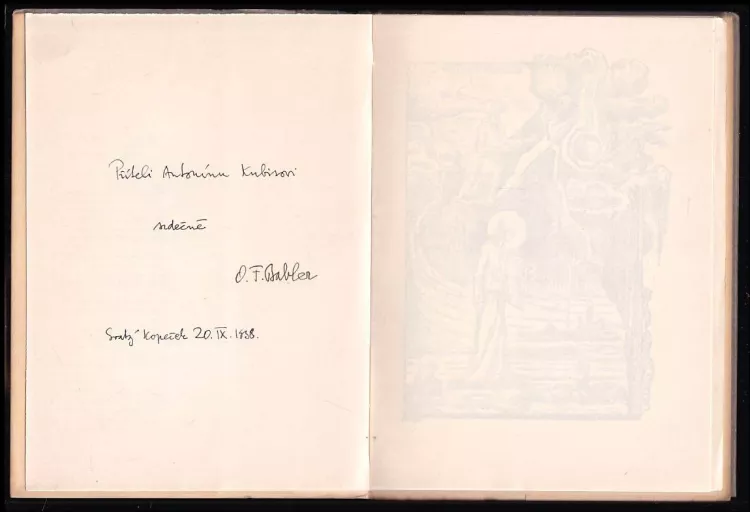 Příteli Antonínu Kubisovi
srdečně
O. F. Babler
Svatý Kopeček 20. IX. 1938.